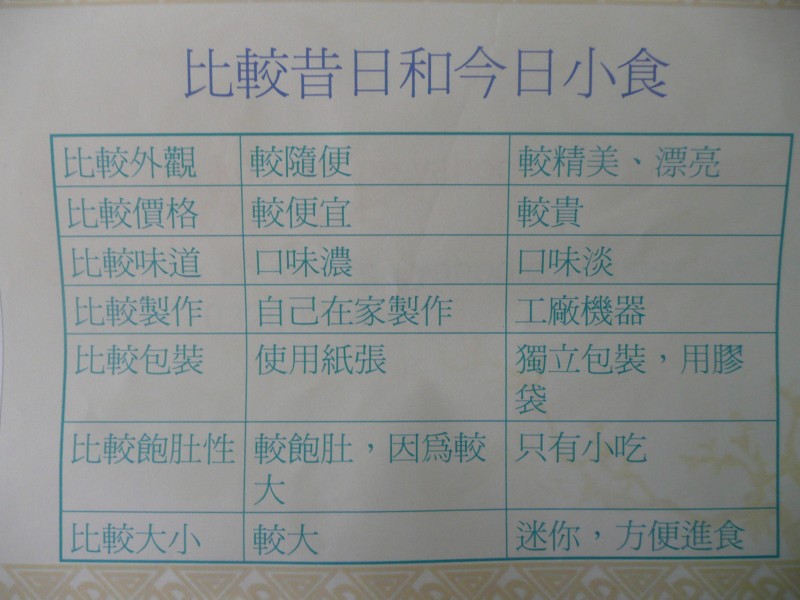 比較昔日和今日小食
比較外觀 較隨便 較精美、漂亮
比較價格 較便宜 較貴
比較味道 口味濃 口味淡
比較製作 自己在家製作 工廠機器
比較包裝 使用紙張 獨立包裝，用膠
袋
比較飽肚性 較飽肚，因爲較 只有小吃
大
比較大小 較大 迷你，方便進食